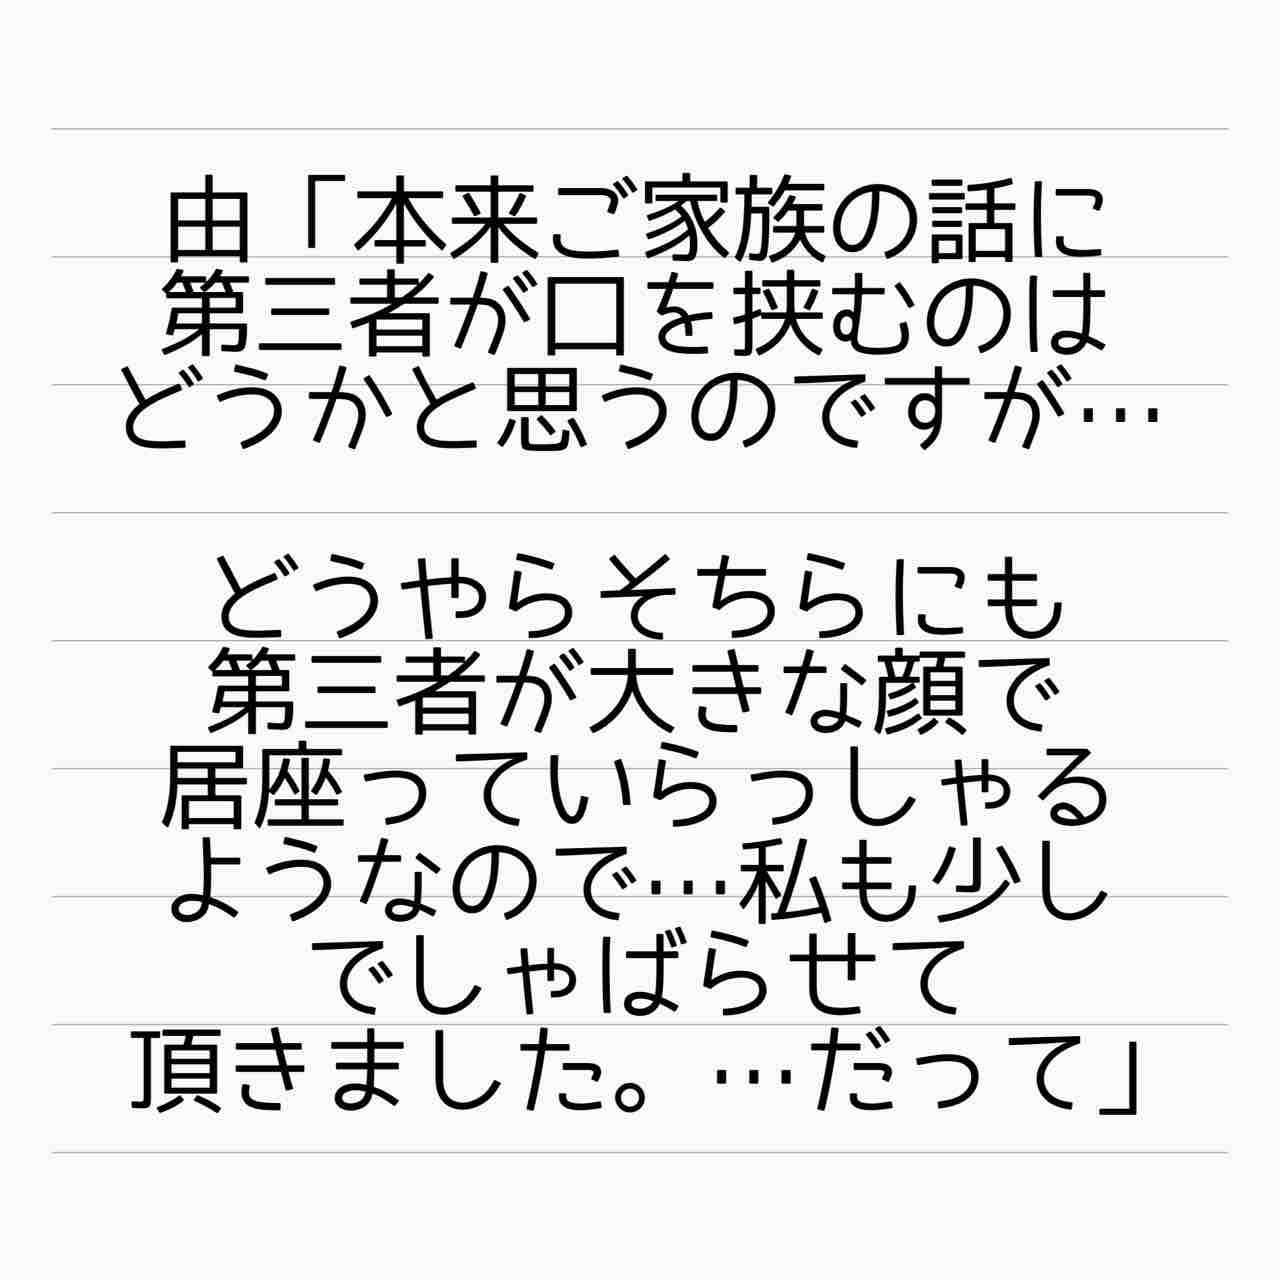 由「本来ご家族の話に
第三者が口を挟むのは
どうかと思うのですが…
どうやらそちらにも
第三者が大きな顔で
居座っていらっしゃる
ようなので…私も少し
でしゃばらせて
頂きました。…だって」